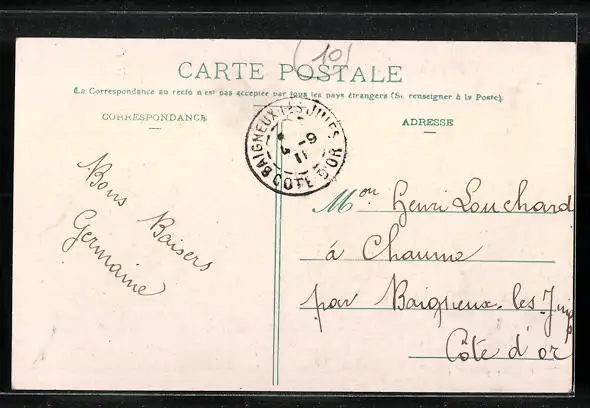 (10)
CARTE POSTALE
La Correspondance au recto n'est pas acceptée par tous les pays étrangers (Se renseigner à la Poste).
CORRESPONDANCE
ADRESSE
BAIGNEUX-LES-JUIFS
9
11
COTE D'OR
Bons Baisers
Germaine
Mon Henri Louchard
á Chaume
par Baigneux-les-Juifs
Côte d'or